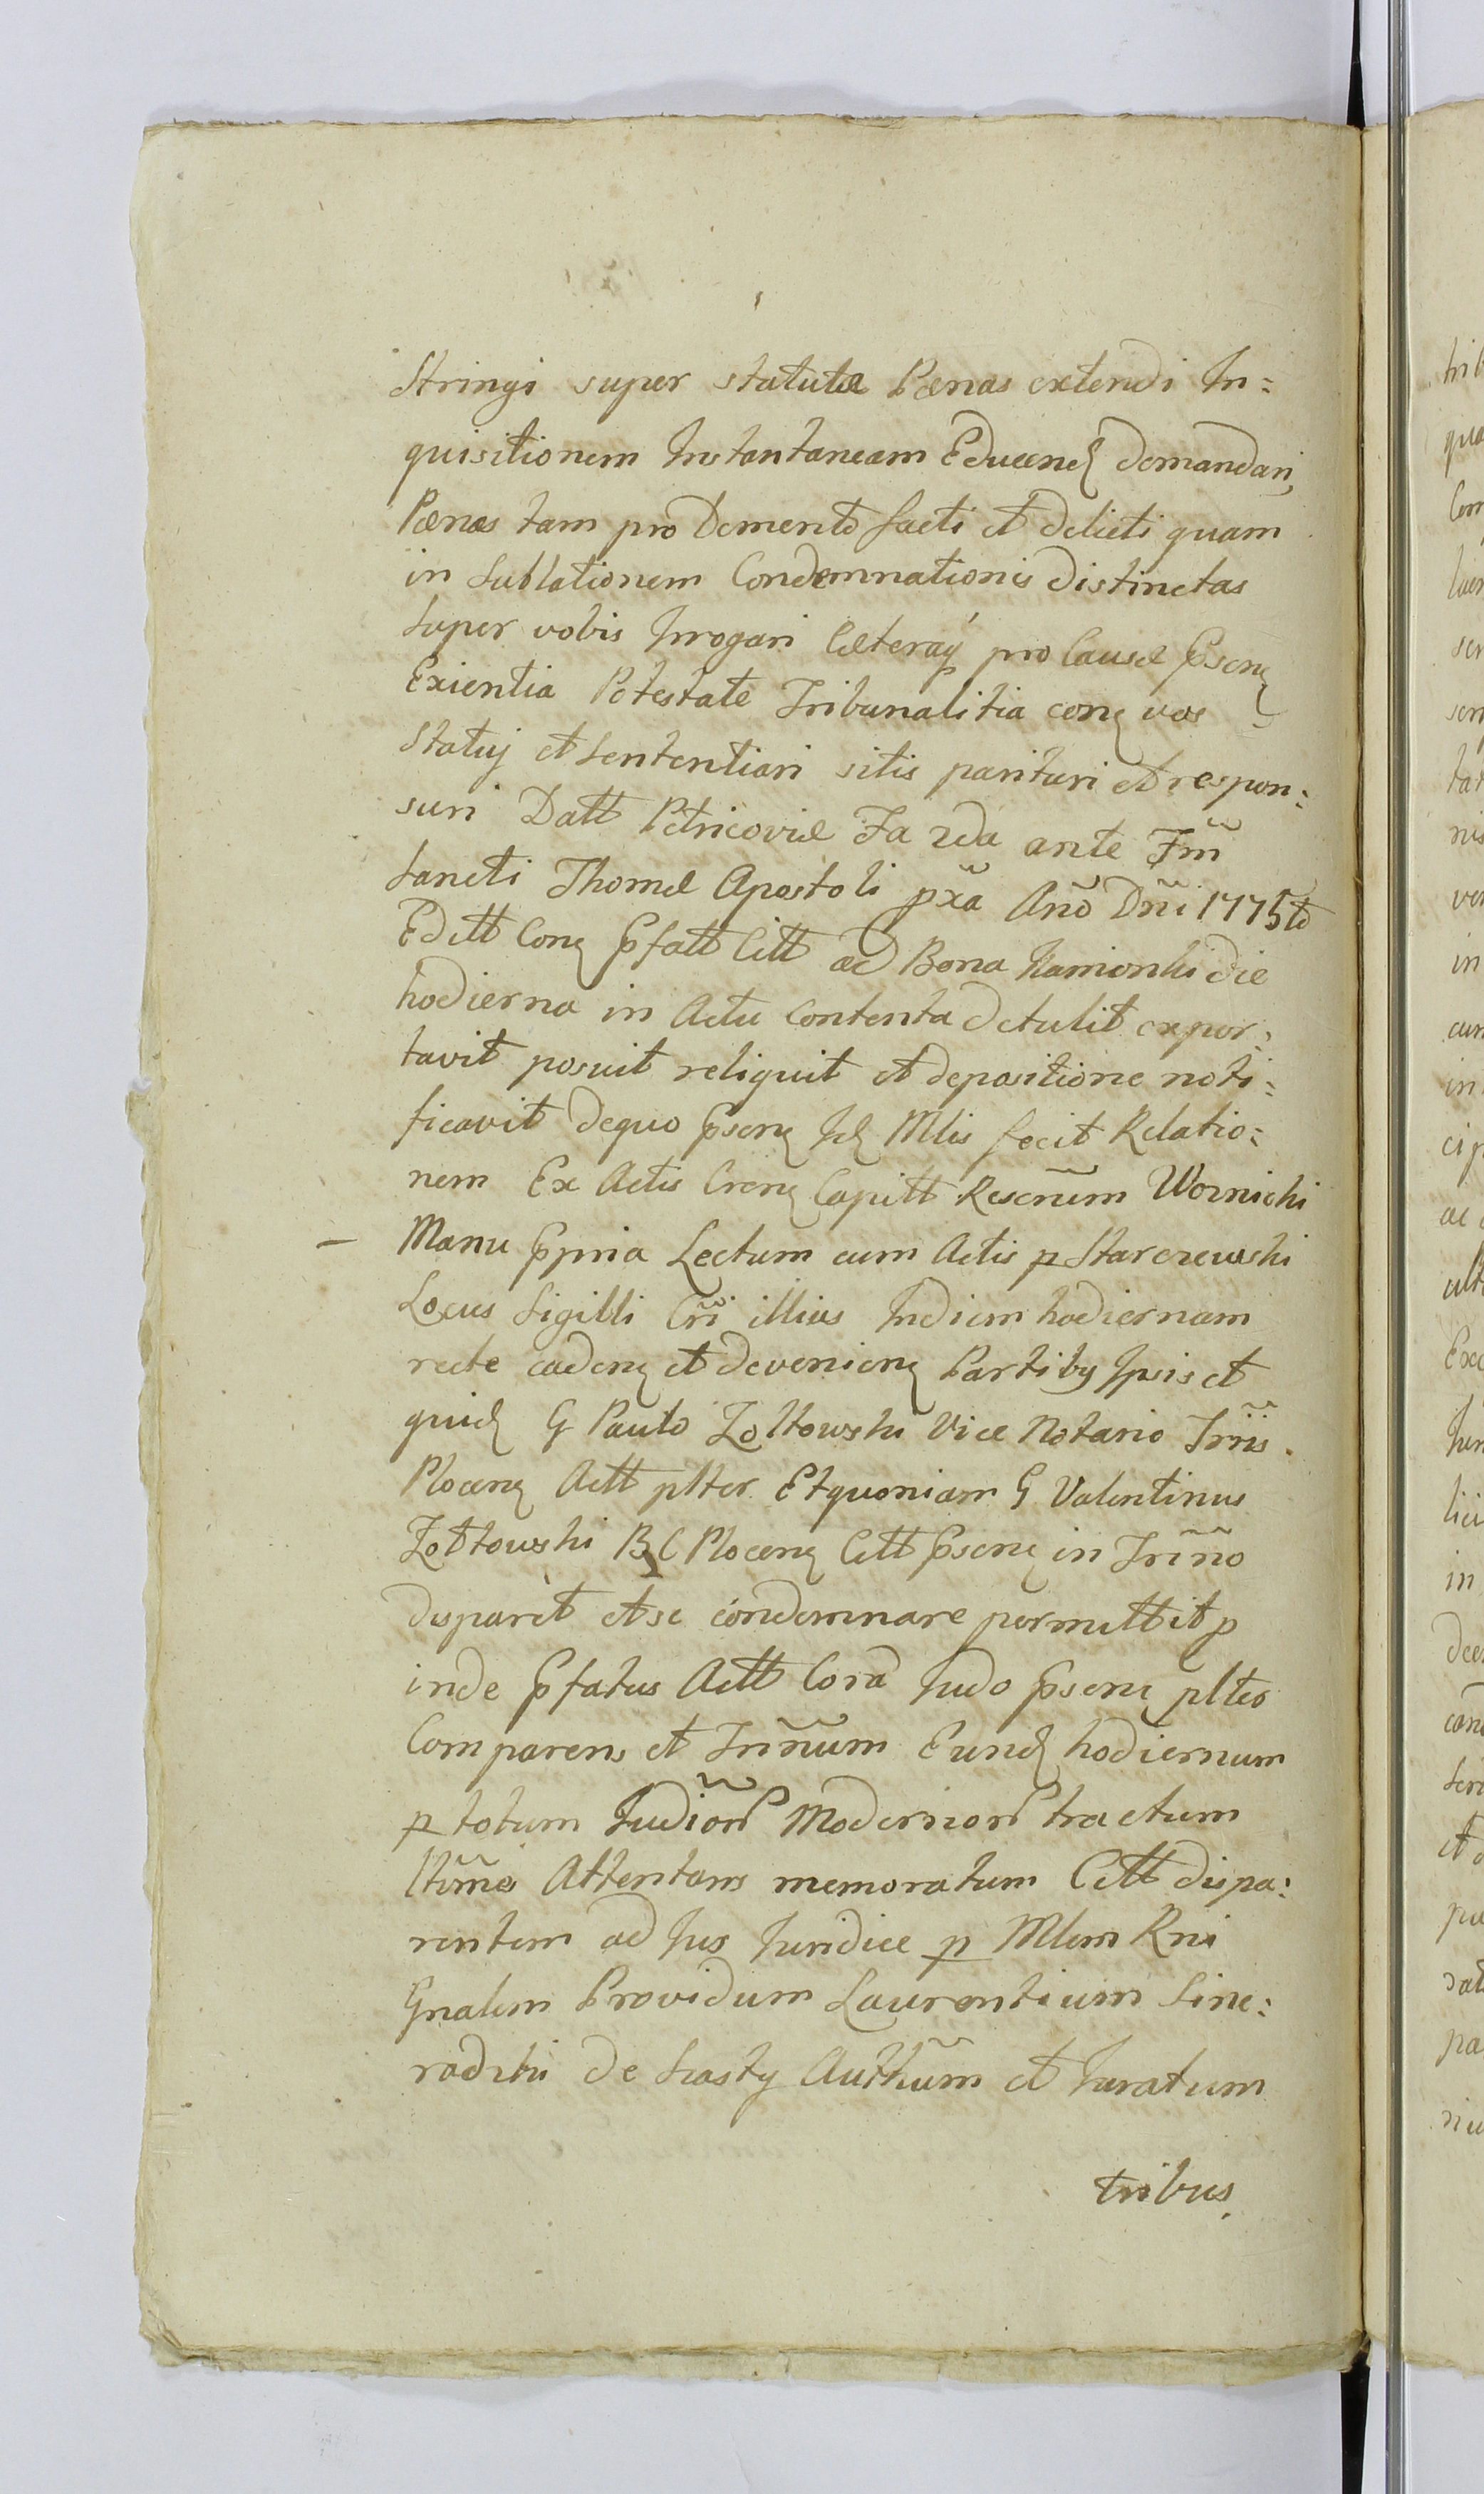 Stringi super statutæ Pœnas extendi In=
quisitionem Instantaneam Educend demandari,
Pœnas tam pro Demerito facti et delicti quam
in Sublationem Condemnationis distinctas
Super vobis Irrogari Cæteraq pro Causæ Psenę
Exientia Potestate Tribunalitia conę vos
Statuj et Sententiari sitis parituri et respon=
suri Datt Petricoviæ Fa 2da ante Fm̃
Sancti Thomæ Apostoli px̃a Año Dñi 1775to
Editt Conę Pfatt Citt ad Bona Kamionki die
hodierna in Actu Contenta detulit expor=
tavit posuit reliquit et depositione noti=
ficavit dequo Psenę Id Mlis fecit Relatio=
nem Ex Actis Crenę Capitt Rescrĩum Woznicki
— Manu Ppria Lectum cum Actis p Starczewski
Locus Sigilli Crĩ illius Indiem hodiernam
recte cadenę et devenienę Partibg Ipsis et
quid G Paulo Zołtowski Vice Notario Trr̃is
Plocenę Actt plter Etquoniam G Valentinus
Zołtowski B C Plocenę Citt Psenę in Trm̃no
disparèt et se condemnare permittit p
inde Pfatus Actt Corã Judo Psenę plter
Comparens et Trm̃num Eund hodiernum
p totum Judiõr Modernor tractum
ltm̃e Attentans memoratum Citt dispa=
rentem ad Jus Juridice p Mlem Rni
Gnalem Providum Laurentium Sine=
radzki de Siasty Autht̃um et Juratum
tribus
tri